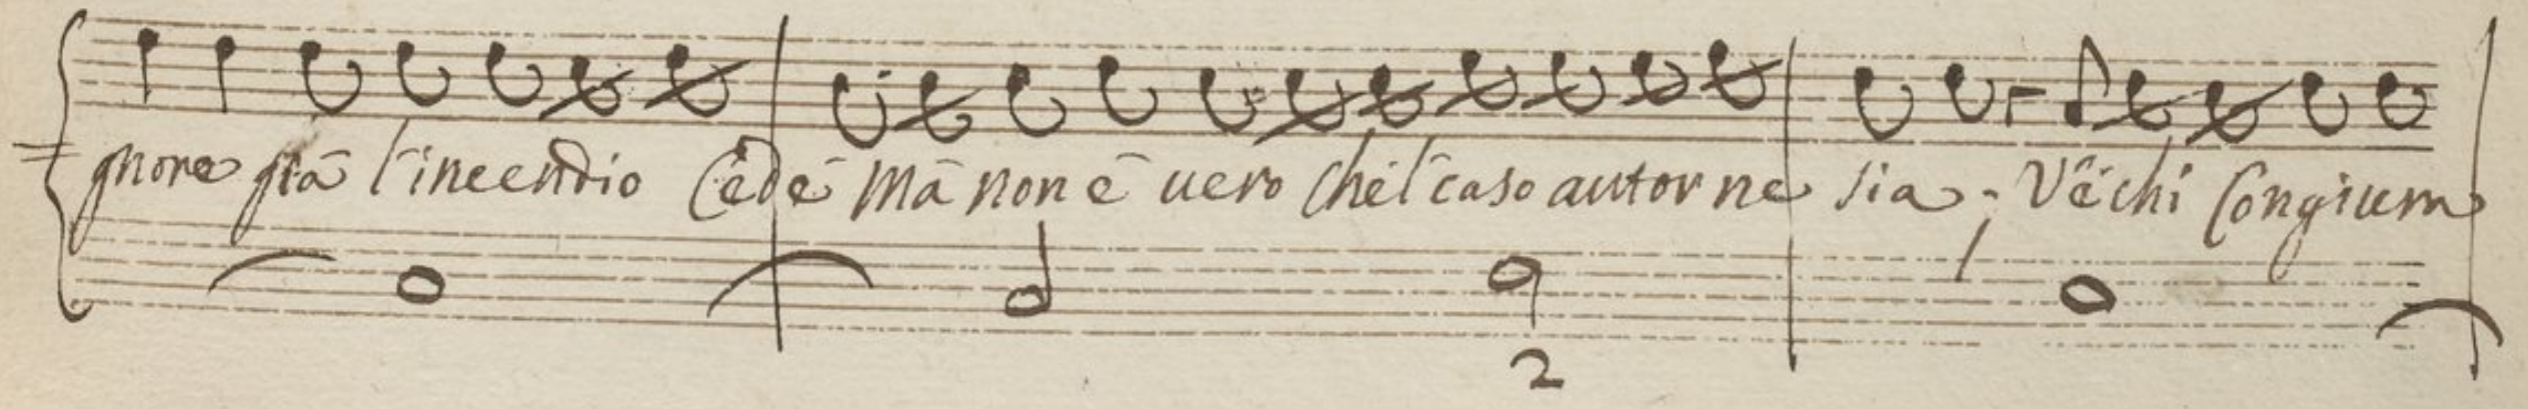 gnore già l'incendio Cede mà non è uero ch'el caso autor ne sia. V'è chi Congium
2